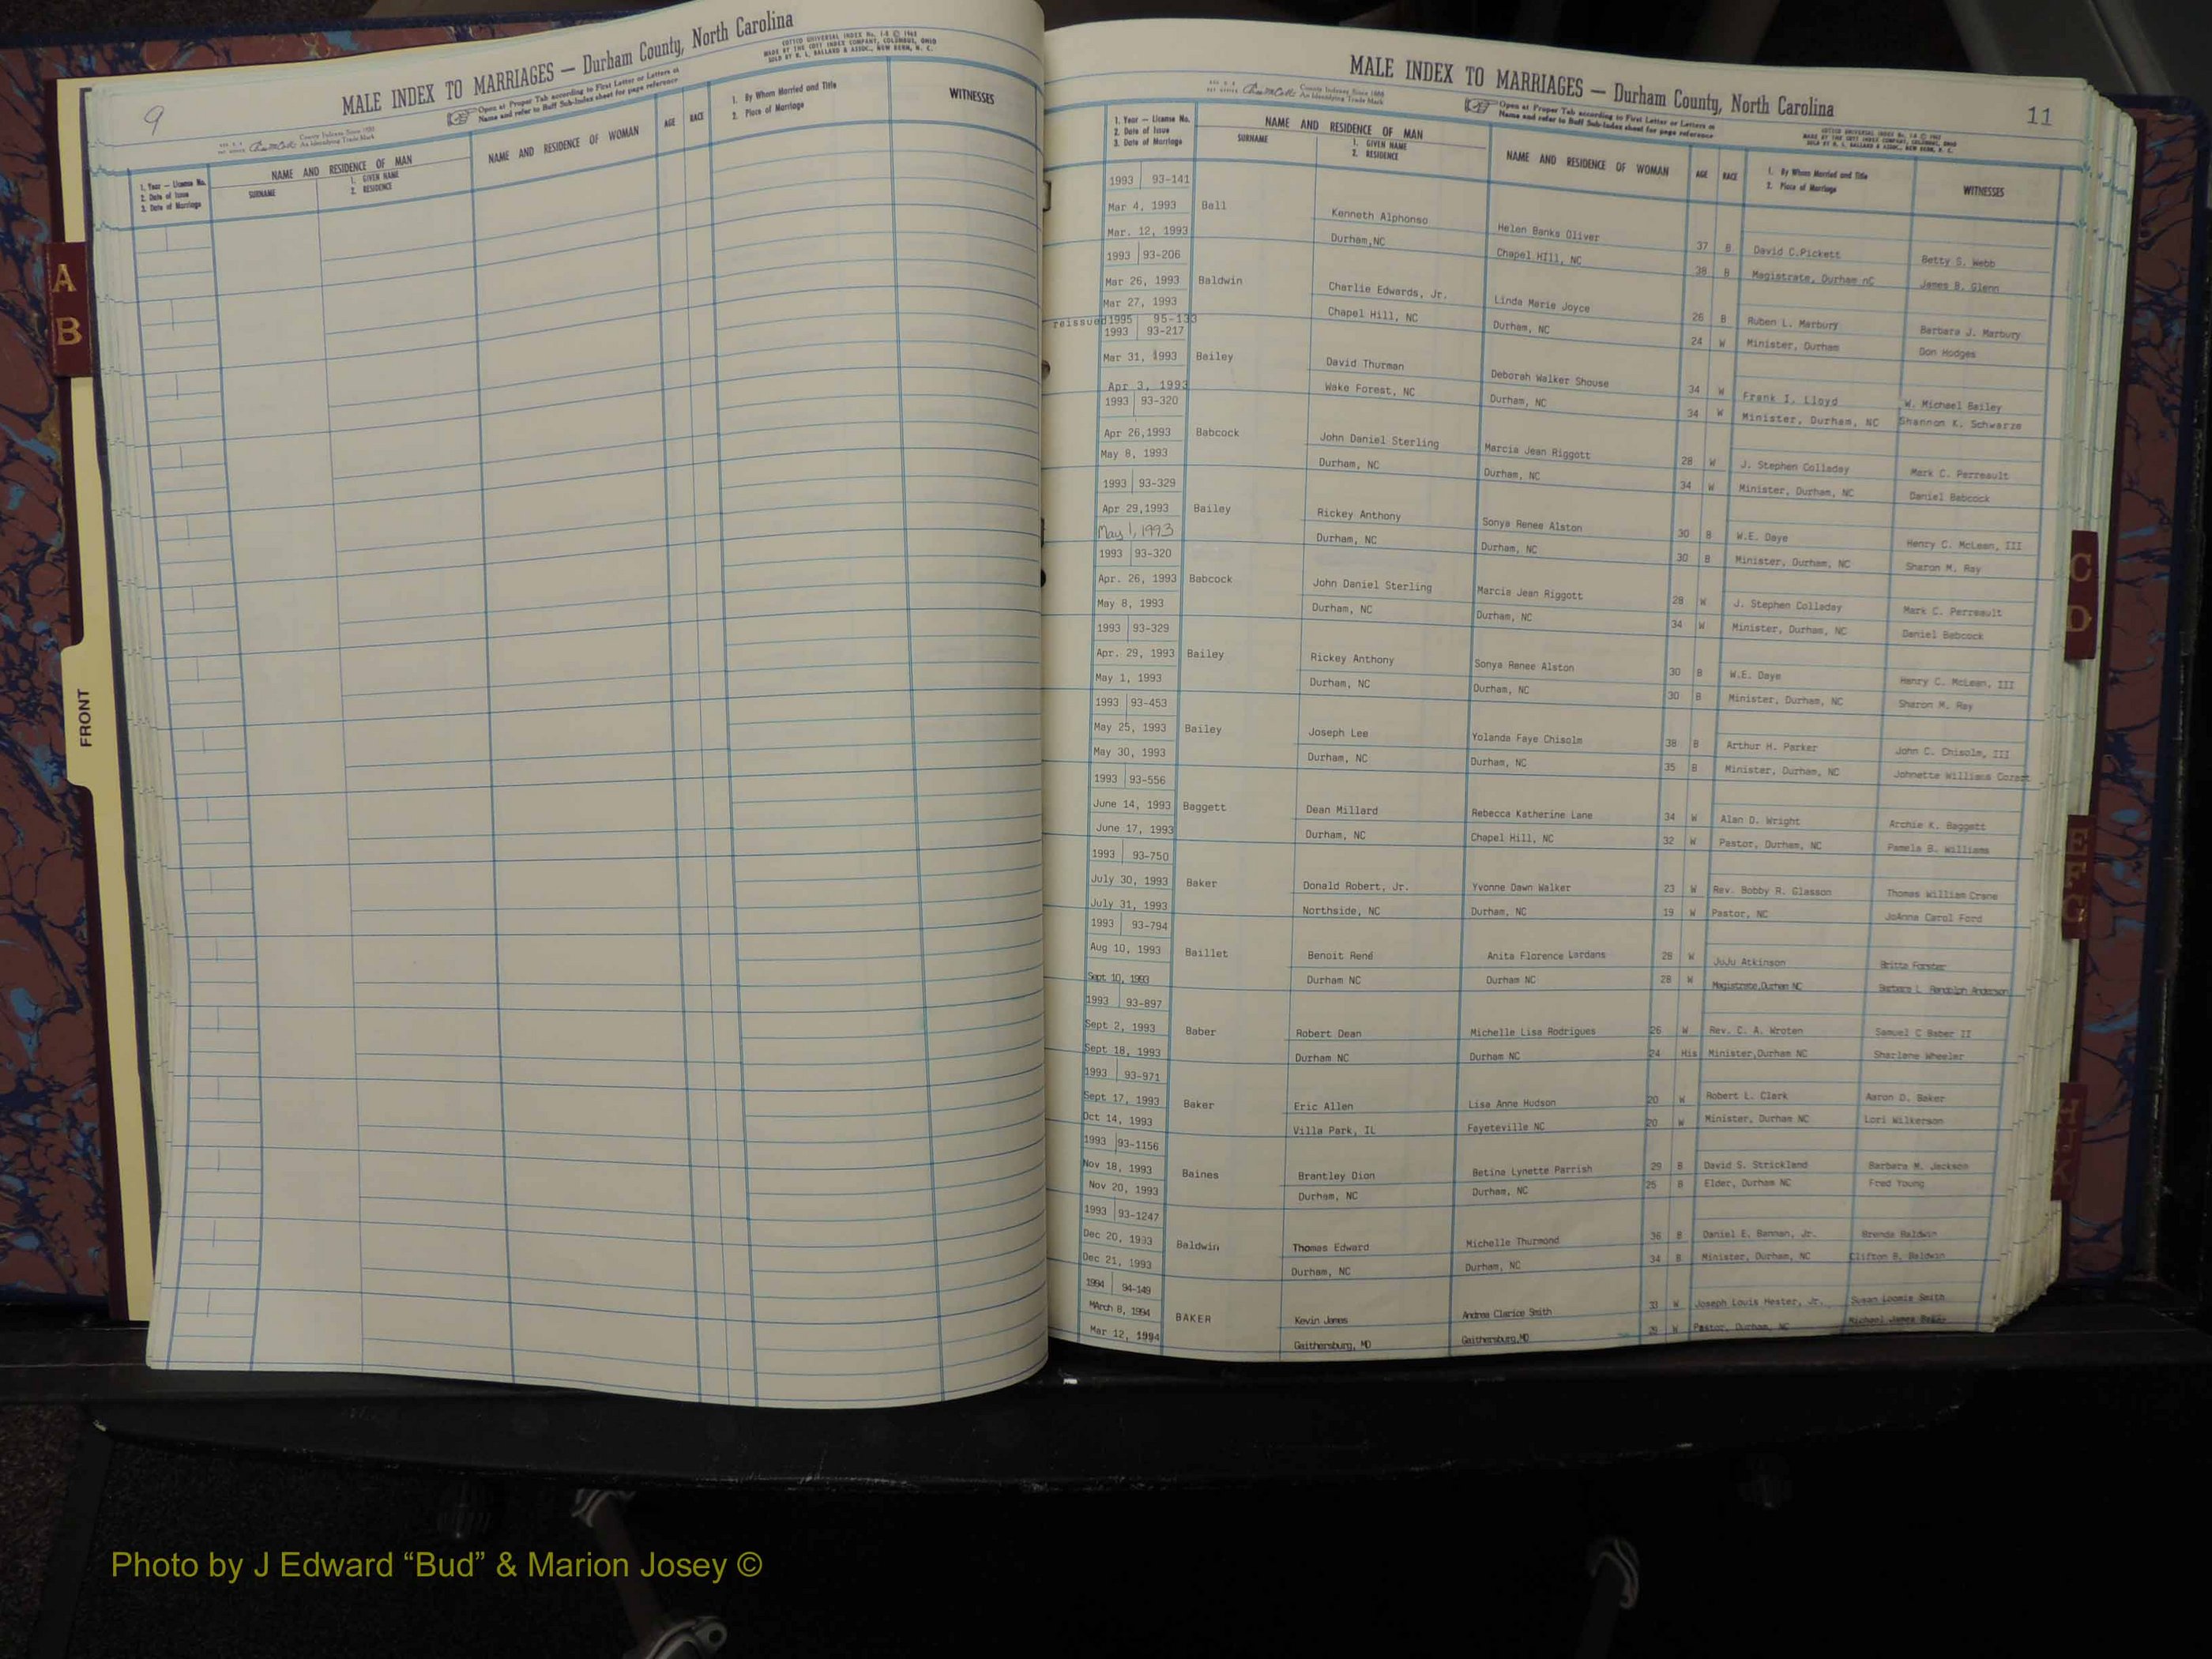 9
MALE INDEX TO MARRIAGES — Durham County, North Carolina
COTTCO UNIVERSAL INDEX No. 1-8 © 1962
MADE BY THE COTT INDEX COMPANY, COLUMBUS, OHIO
SOLD BY R. L. BALLARD & ASSOC., NEW BERN, N. C.
County Indexes Since 1888
An Identifying Trade Mark
Open at Proper Tab according to First Letter or Letters of
Name and refer to Buff Sub-Index sheet for page reference
1. Year — License No.
2. Date of Issue
3. Date of Marriage
NAME AND RESIDENCE OF MAN
SURNAME
1. GIVEN NAME
2. RESIDENCE
NAME AND RESIDENCE OF WOMAN
AGE
RACE
1. By Whom Married and Title
2. Place of Marriage
WITNESSES
A
B
FRONT
MALE INDEX TO MARRIAGES — Durham County, North Carolina
11
County Indexes Since 1888
An Identifying Trade Mark
Open at Proper Tab according to First Letter or Letters of
Name and refer to Buff Sub-Index sheet for page reference
COTTCO UNIVERSAL INDEX No. 1-8 © 1962
MADE BY THE COTT INDEX COMPANY, COLUMBUS, OHIO
SOLD BY R. L. BALLARD & ASSOC., NEW BERN, N. C.
1. Year — License No.
2. Date of Issue
3. Date of Marriage
NAME AND RESIDENCE OF MAN
SURNAME
1. GIVEN NAME
2. RESIDENCE
NAME AND RESIDENCE OF WOMAN
AGE
RACE
1. By Whom Married and Title
2. Place of Marriage
WITNESSES
1993 93-141
Mar 4, 1993 Ball Kenneth Alphonso Helen Banks Oliver 37 B David C.Pickett Betty S. Webb
Mar. 12, 1993 Durham,NC Chapel HIll, NC 38 B Magistrate, Durham nC James B. Glenn
1993 93-206
Mar 26, 1993 Baldwin Charlie Edwards, Jr. Linda Marie Joyce 26 B Ruben L. Marbury Barbara J. Marbury
Mar 27, 1993 Chapel Hill, NC Durham, NC 24 W Minister, Durham Don Hodges
reissued 1995 95-133
1993 93-217
Mar 31, 1993 Bailey David Thurman Deborah Walker Shouse 34 W Frank I. Lloyd W. Michael Bailey
Apr 3, 1993 Wake Forest, NC Durham, NC 34 W Minister, Durham, NC Shannon K. Schwarze
1993 93-320
Apr 26,1993 Babcock John Daniel Sterling Marcia Jean Riggott 28 W J. Stephen Colladay Mark C. Perreault
May 8, 1993 Durham, NC Durham, NC 34 W Minister, Durham, NC Daniel Babcock
1993 93-329
Apr 29,1993 Bailey Rickey Anthony Sonya Renee Alston 30 B W.E. Daye Henry C. McLean, III
May 1, 1993 Durham, NC Durham, NC 30 B Minister, Durham, NC Sharon M. Ray
1993 93-320
Apr. 26, 1993 Babcock John Daniel Sterling Marcia Jean Riggott 28 W J. Stephen Colladay Mark C. Perreault
May 8, 1993 Durham, NC Durham, NC 34 W Minister, Durham, NC Daniel Babcock
1993 93-329
Apr. 29, 1993 Bailey Rickey Anthony Sonya Renee Alston 30 B W.E. Daye Henry C. McLean, III
May 1, 1993 Durham, NC Durham, NC 30 B Minister, Durham, NC Sharon M. Ray
1993 93-453
May 25, 1993 Bailey Joseph Lee Yolanda Faye Chisolm 38 B Arthur H. Parker John C. Chisolm, III
May 30, 1993 Durham, NC Durham, NC 35 B Minister, Durham, NC Johnette Williams
1993 93-556
June 14, 1993 Baggett Dean Millard Rebecca Katherine Lane 34 W Alan D. Wright Archie K. Baggett
June 17, 1993 Durham, NC Chapel Hill, NC 32 W Pastor, Durham, NC Pamela B. Williams
1993 93-750
July 30, 1993 Baker Donald Robert, Jr. Yvonne Dawn Walker 23 W Rev. Bobby R. Glasson Thomas William Crane
July 31, 1993 Northside, NC Durham, NC 19 W Pastor, NC JoAnna Carol Ford
1993 93-794
Aug 10, 1993 Baillet Benoit René Anita Florence Lardans 28 W JuJu Atkinson Britta Forster
Sept 10, 1993 Durham NC Durham NC 28 W Magistrate,Durham NC Barbara L Randolph Anderson
1993 93-897
Sept 2, 1993 Baber Robert Dean Michelle Lisa Rodrigues 26 W Rev. C. A. Wroten Samuel C Baber II
Sept 18, 1993 Durham NC Durham NC 24 His Minister,Durham NC Sharlene Wheeler
1993 93-971
Sept 17, 1993 Baker Eric Allen Lisa Anne Hudson 20 W Robert L. Clark Aaron D. Baker
Oct 14, 1993 Villa Park, IL Fayeteville NC 20 W Minister, Durham NC Lori Wilkerson
1993 93-1156
Nov 18, 1993 Baines Brantley Dion Betina Lynette Parrish 29 B David S. Strickland Barbara M. Jackson
Nov 20, 1993 Durham, NC Durham, NC 25 B Elder, Durham NC Fred Young
1993 93-1247
Dec 20, 1993 Baldwin Thomas Edward Michelle Thurmond 36 B Daniel E. Bannan, Jr. Brenda Baldwin
Dec 21, 1993 Durham, NC Durham, NC 34 B Minister, Durham, NC Clifton B. Baldwin
1994 94-149
MArch 8, 1994 BAKER Kevin James Andrea Clarice Smith W Joseph Louis Hester, Jr. Susan Loomis Smith
Mar 12, 1994 Gaithersburg, MD Gaithersburg,MD W Pastor, Durham, NC Michael James Baker
C
D
Photo by J Edward “Bud” & Marion Josey ©